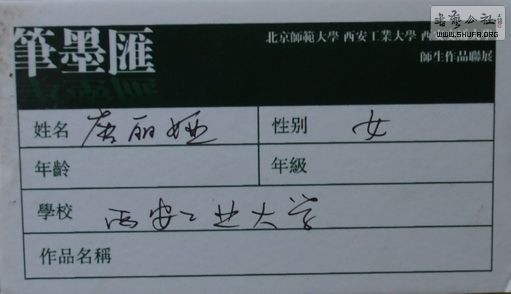 書藝公社
WWW.SHUFA.ORG
筆墨匯
北京師範大學 西安工業大學 西
師生作品聯展
姓名 唐丽娅 性别 女
年齡 年級
學校 西安工业大学
作品名稱